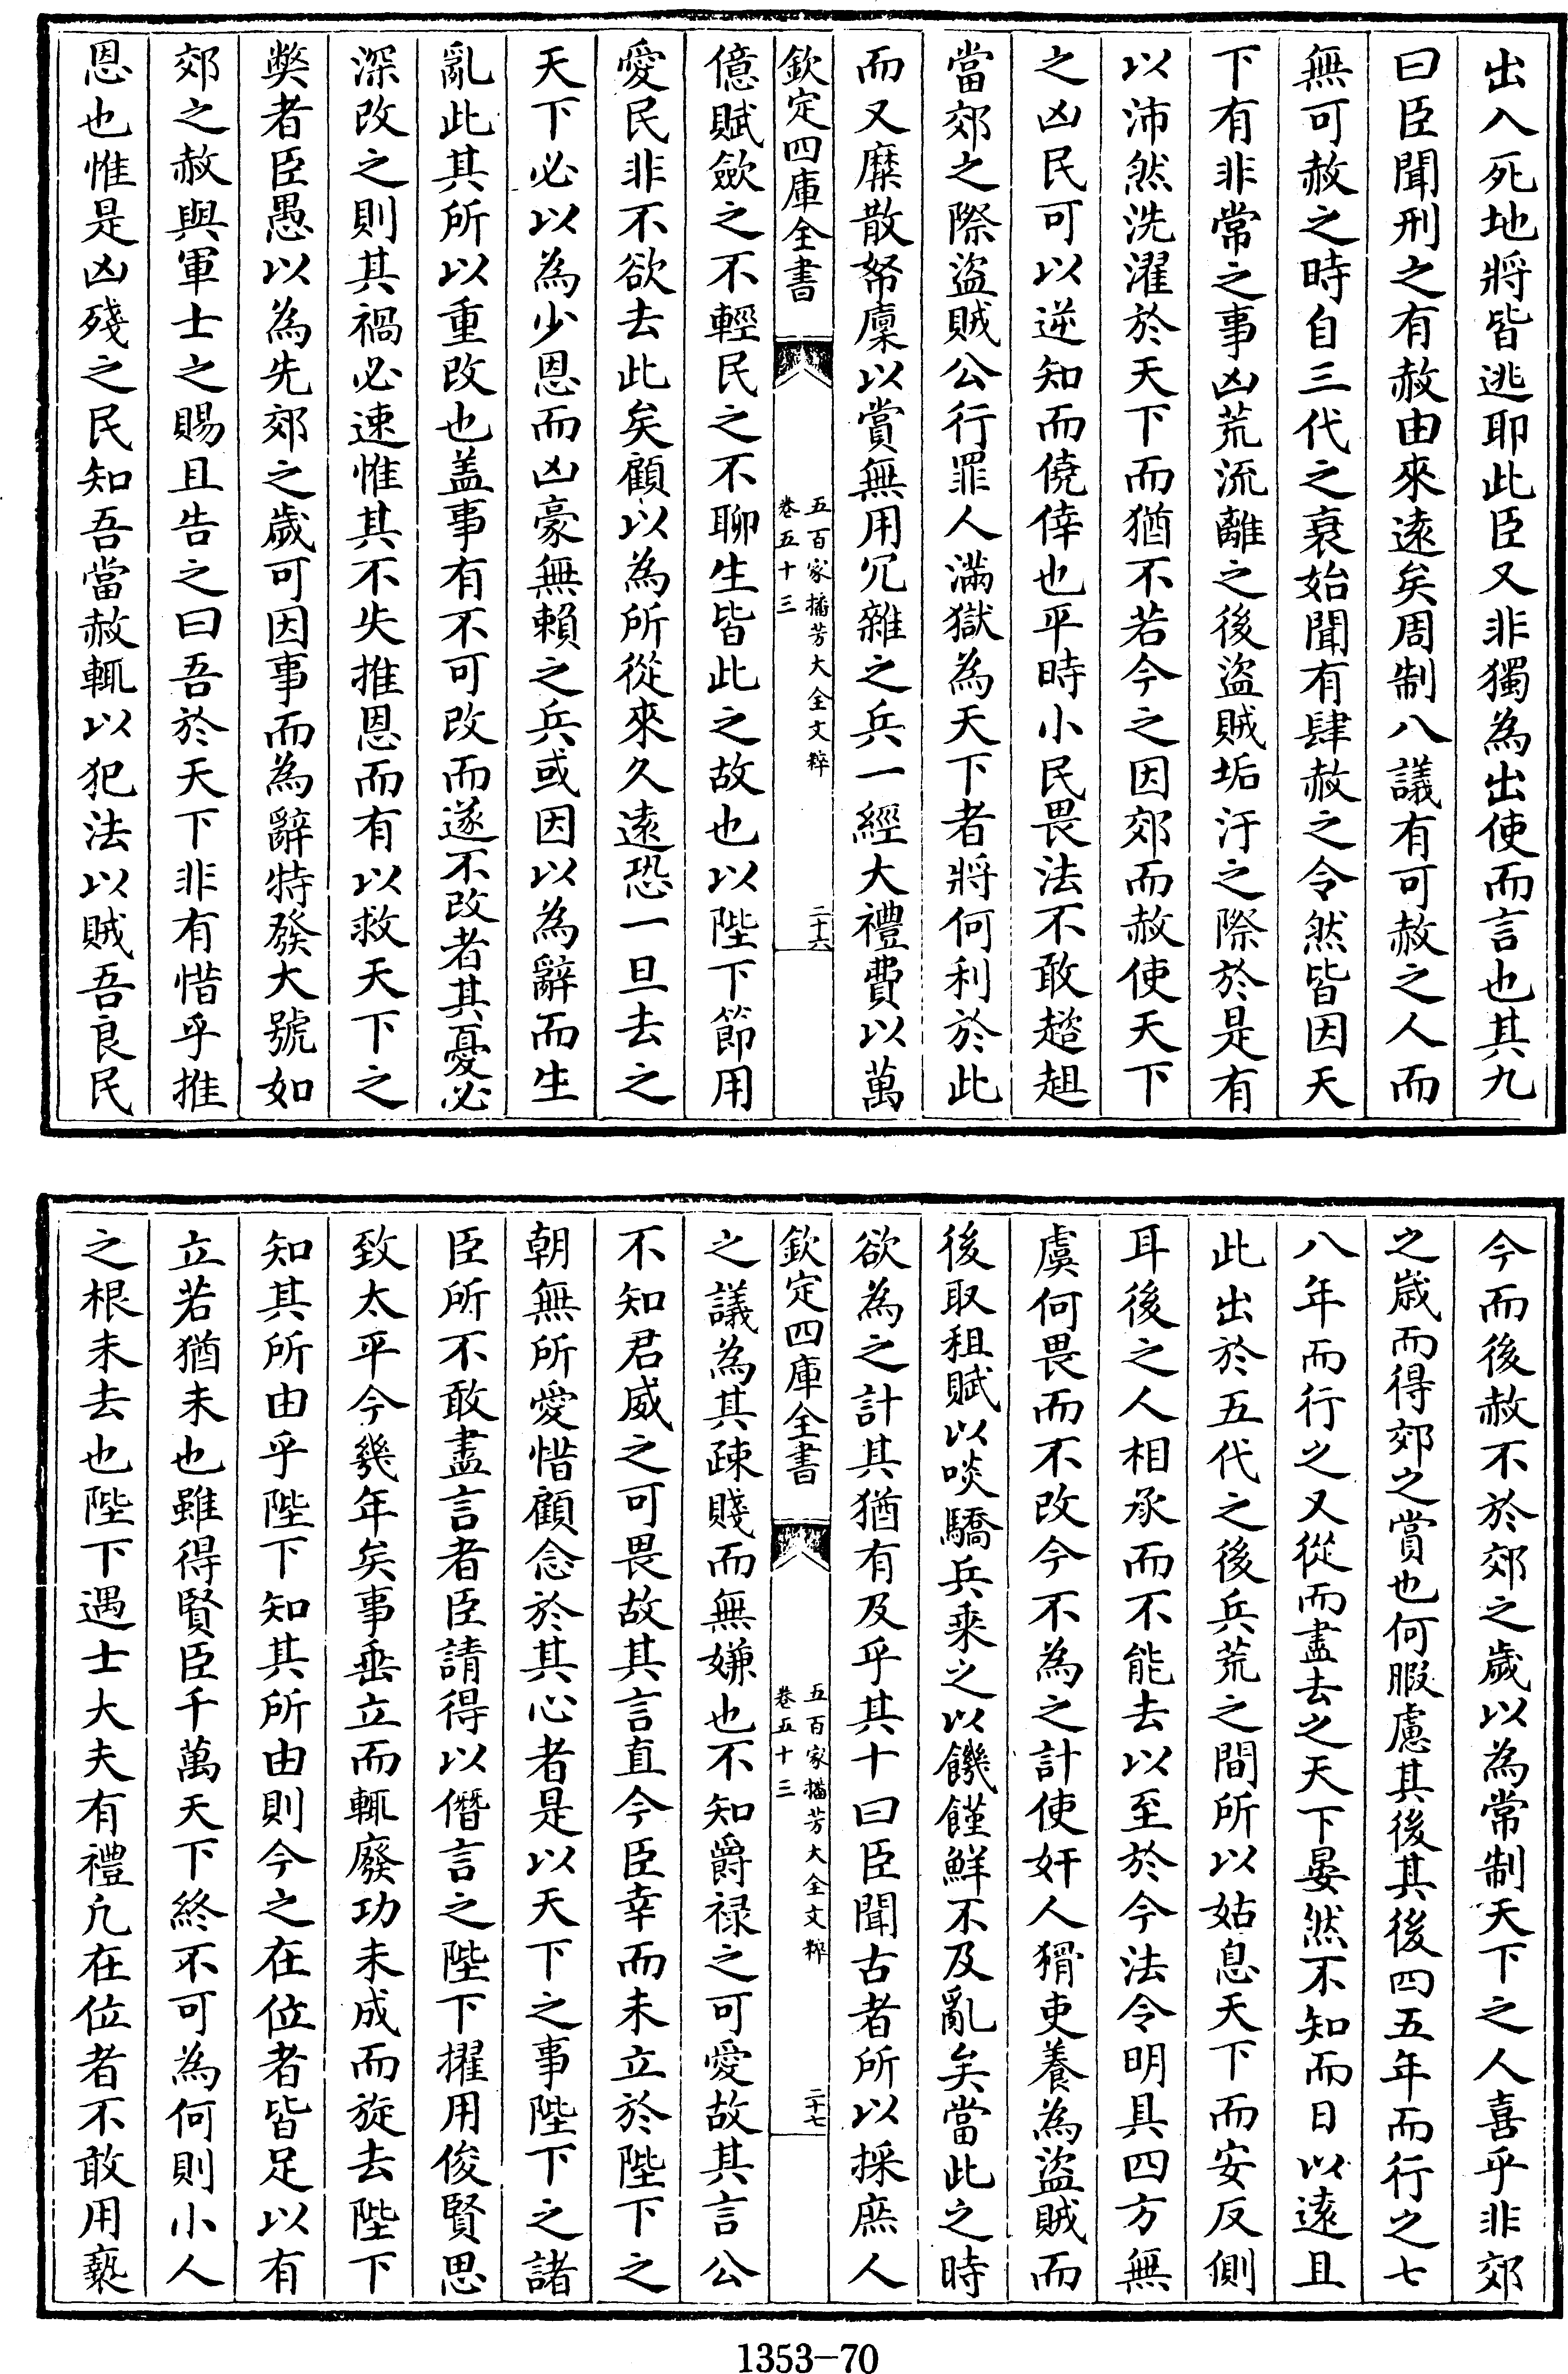 出入死地將皆逃耶此臣又非獨為出使而言也其九
曰臣聞刑之有赦由來遠矣周制八議有可赦之人而
無可赦之時自三代之衰始聞有肆赦之令然皆因天
下有非常之事凶荒流離之後盜賊垢汙之際於是有
以沛然洗濯於天下而猶不若今之因郊而赦使天下
之凶民可以逆知而僥倖也平時小民畏法不敢趑趄
當郊之際盜賊公行罪人滿獄為天下者將何利於此
而又糜散帑廩以賞無用冗雜之兵一經大禮費以萬
欽定四庫全書
五百家播芳大全文粹
卷五十三
二十六
億賦斂之不輕民之不聊生皆此之故也以陛下節用
愛民非不欲去此矣顧以為所從來久遠恐一旦去之
天下必以為少恩而凶豪無賴之兵或因以為辭而生
亂此其所以重改也盖事有不可改而遂不改者其憂必
深改之則其禍必速惟其不失推恩而有以救天下之
獘者臣愚以為先郊之歲可因事而為辭特發大號如
郊之赦與軍士之賜且告之曰吾於天下非有惜乎推
恩也惟是凶殘之民知吾當赦輒以犯法以賊吾良民
今而後赦不於郊之歲以為常制天下之人喜乎非郊
之歲而得郊之賞也何暇慮其後其後四五年而行之七
八年而行之又從而盡去之天下晏然不知而日以遠且
此出於五代之後兵荒之間所以姑息天下而安反側
耳後之人相承而不能去以至於今法令明具四方無
虞何畏而不改今不為之計使奸人猾吏養為盜賊而
後取租賦以啖驕兵乘之以饑饉鮮不及亂矣當此之時
欲為之計其猶有及乎其十曰臣聞古者所以採庶人
欽定四庫全書
五百家播芳大全文粹
卷五十三
二十七
之議為其疎賤而無嫌也不知爵禄之可愛故其言公
不知君威之可畏故其言直今臣幸而未立於陛下之
朝無所愛惜顧念於其心者是以天下之事陛下之諸
臣所不敢盡言者臣請得以僭言之陛下擢用俊賢思
致太平今幾年矣事垂立而輒廢功未成而旋去陛下
知其所由乎陛下知其所由則今之在位者皆足以有
立若猶未也雖得賢臣千萬天下終不可為何則小人
之根未去也陛下遇士大夫有禮凢在位者不敢用褻
1353-70